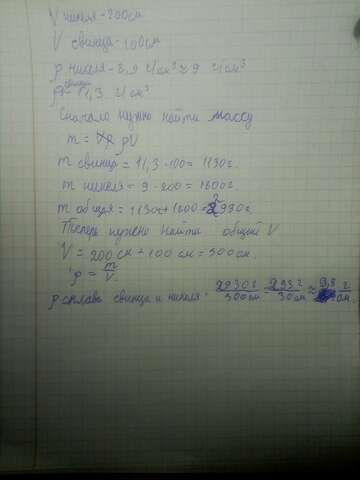 V никеля - 200см
V свинца - 100см
ρ никеля - 8,9 г/см³ ≈ 9 г/см³
ρ свинца - 11,3 г/см³
Сначало нужно найти массу
m = ρV
m свинца = 11,3 · 100 = 1130г.
m никеля = 9 · 200 = 1800г.
m общая = 1130 + 1800 = 2930г.
Теперь нужно найти общий V
V = 200 см + 100 см = 300см.
ρ = m/V
ρ сплава свинца и никеля: 2930г/300см = 293г/30см ≈ 9,8 г/см